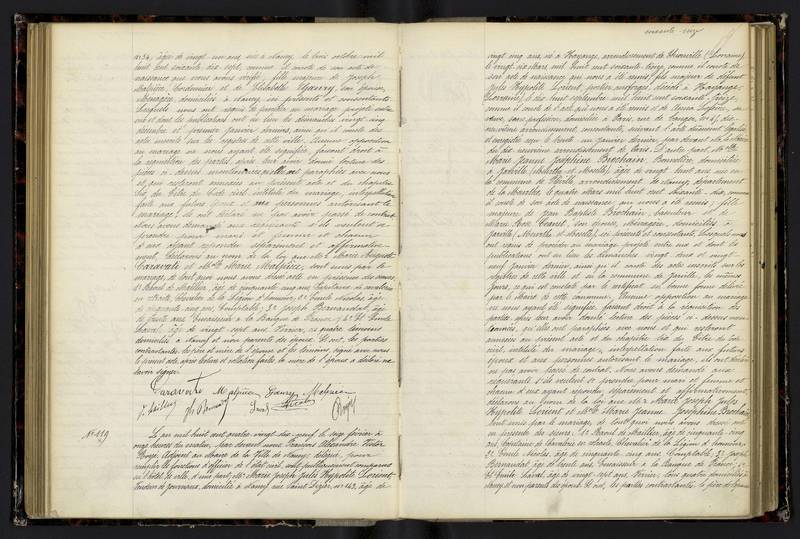 No 34, âgée de vingt un ans, née à Nancy, le trois octobre mil
huit cent soixante dix sept, comme il conste de son acte de
naissance que nous avons vérifié, fille majeure de Joseph
Malpièce, Cordonnier et de Elisabeth Gauvry, son épouse,
Ménagère, domiciliés à Nancy, ici présents et consentants
Lesquels nous ont requis de procéder au mariage projeté entre
eux et dont les publications ont eu lieu les dimanches vingt cinq
décembre et premier janvier derniers, ainsi qu'il conste des
acte inscrits sur les registres de cette ville. Aucune opposition
au mariage ne nous ayant été signifiée, faisant droit à
la réquisition des parties, après leur avoir donné lecture des
pièces ci-dessus mentionnées, qu'elles ont paraphées avec nous
et qui resteront annexées au présent acte et du chapitre
six du Titre du Code civil intitulé du mariage, interpellation
faite aux futurs époux et aux personnes autorisant le
mariage, ils ont déclaré ne pas avoir passé de contrat
Nous avons demandé aux requérants s'ils veulent se
prendre pour mari et femme et chacun
d'eux ayant répondu séparément et affirmative
ment, déclarons au nom de la loi que Mr Marie
Caravati et Melle Marie Malpièce, sont unis par le
mariage, de tout quoi nous avons dressé acte en présence des sieurs
1° âgé de cinquante cinq ans, Capitaine de cavalerie
en retraite, Chevalier de la Légion d'honneur, 2° Emile Nicolas, âgé
de cinquante cinq ans, Comptable, 3° Joseph Bernardat, âgé
de trente ans, Encaisseur à la Banque de France, 4° Et Emile
Laval, âgé de vingt sept ans, Verrier, ces quatre témoins
domiciliés à Nancy et non parents des époux. Et ont, les parties
contractantes, les père et mère de l'épouse et les témoins, signé avec nous
le présent acte après lecture et
savoir signer.
Malpièce Gauvry
Laval Nicolas
No 119
L'an mil huit cent quatre vingt dix neuf, le seize février à
onze heures du matin, par devant nous François Alexandre Victor
Adjoint au Maire de la Ville de Nancy, délégué, pour
remplir les fonctions d'officier de l'état civil, sont publiquement comparus
en l'hôtel de ville, d'une part, Mr Marie Joseph Jules Hypolite Lorient
Vendeur de Journaux, domicilié à Nancy, rue Saint Dizier, no 143, âgé de
vingt cinq ans, né à Hayange, arrondissement de Thionville (Lorraine)
le vingt six Mars mil huit cent soixante treize, comme il conste de
son acte de naissance, qui nous a été remis, fils majeur de défunt
Jules Hypolite Lorient, décédé à Hayange
(Lorraine) le dix huit septembre mil huit cent soixante treize,
comme il conste de l'acte qui nous a été remis et de
veuve, sans profession, domiciliée à Paris, rue de no 15, dix
neuvième arrondissement, consentante, suivant l'acte dûment légalisé
et enregistré reçu le trente un janvier dernier, par devant le Maire
du dix neuvième arrondissement de Paris. D'autre part, Melle
Marie Jeanne Joséphine Brochain, Bonnetière, domiciliée
à Jarville (Meurthe et Moselle), âgée de vingt huit ans, née en
la commune de arrondissement de Nancy, département
de la Meurthe, le quatre Mars mil huit cent soixante dix, comme
il conste de son acte de naissance qui nous a été remis, fille
majeure de Jean Baptiste Brochain, et de
Marie Rose son épouse, Ménagère, domiciliés à
Jarville (Meurthe et Moselle), ici présents et consentants. Lesquels nous
ont requis de procéder au mariage projeté entre eux et dont les
publications ont eu lieu les dimanches vingt deux et vingt
neuf janvier dernier, ainsi qu'il conste des actes inscrits sur les
registres de cette ville et en la commune de Jarville, les mêmes
jours, ce qui est constaté par le certificat en bonne forme délivré
par le Maire de cette commune. Aucune opposition au mariage
ne nous ayant été signifiée, faisant droit à la réquisition des
parties, après leur avoir donné lecture des pièces ci-dessus men
tionnées, qu'elles ont paraphées avec nous et qui resteront
annexées au présent acte et du chapitre six du Titre du Code
civil, intitulé du mariage, interpellation faite aux futurs
époux et aux personnes autorisant le mariage, ils ont déclaré
ne pas avoir passé de contrat. Nous avons demandé aux
requérants s'ils veulent se prendre pour mari et femme et
chacun d'eux ayant répondu séparément et affirmativement,
déclarons au nom de la loi que Mr Marie Joseph Jules
Hypolite Lorient et Melle Marie Jeanne Joséphine Brochain
sont unis par le mariage, de tout quoi nous avons dressé acte
en présence des sieurs 1° âgé de cinquante cinq
ans, Capitaine de Cavalerie en retraite, Chevalier de la Légion d'honneur,
2° Emile Nicolas, âgé de cinquante cinq ans, Comptable, 3° Joseph
Bernardat, âgé de trente ans, Encaisseur à la Banque de France, 4°
Et Emile Laval, âgé de vingt sept ans, Verrier, ces quatre domiciliés à
Nancy et non parents des époux. Et ont, les parties contractantes, les père et